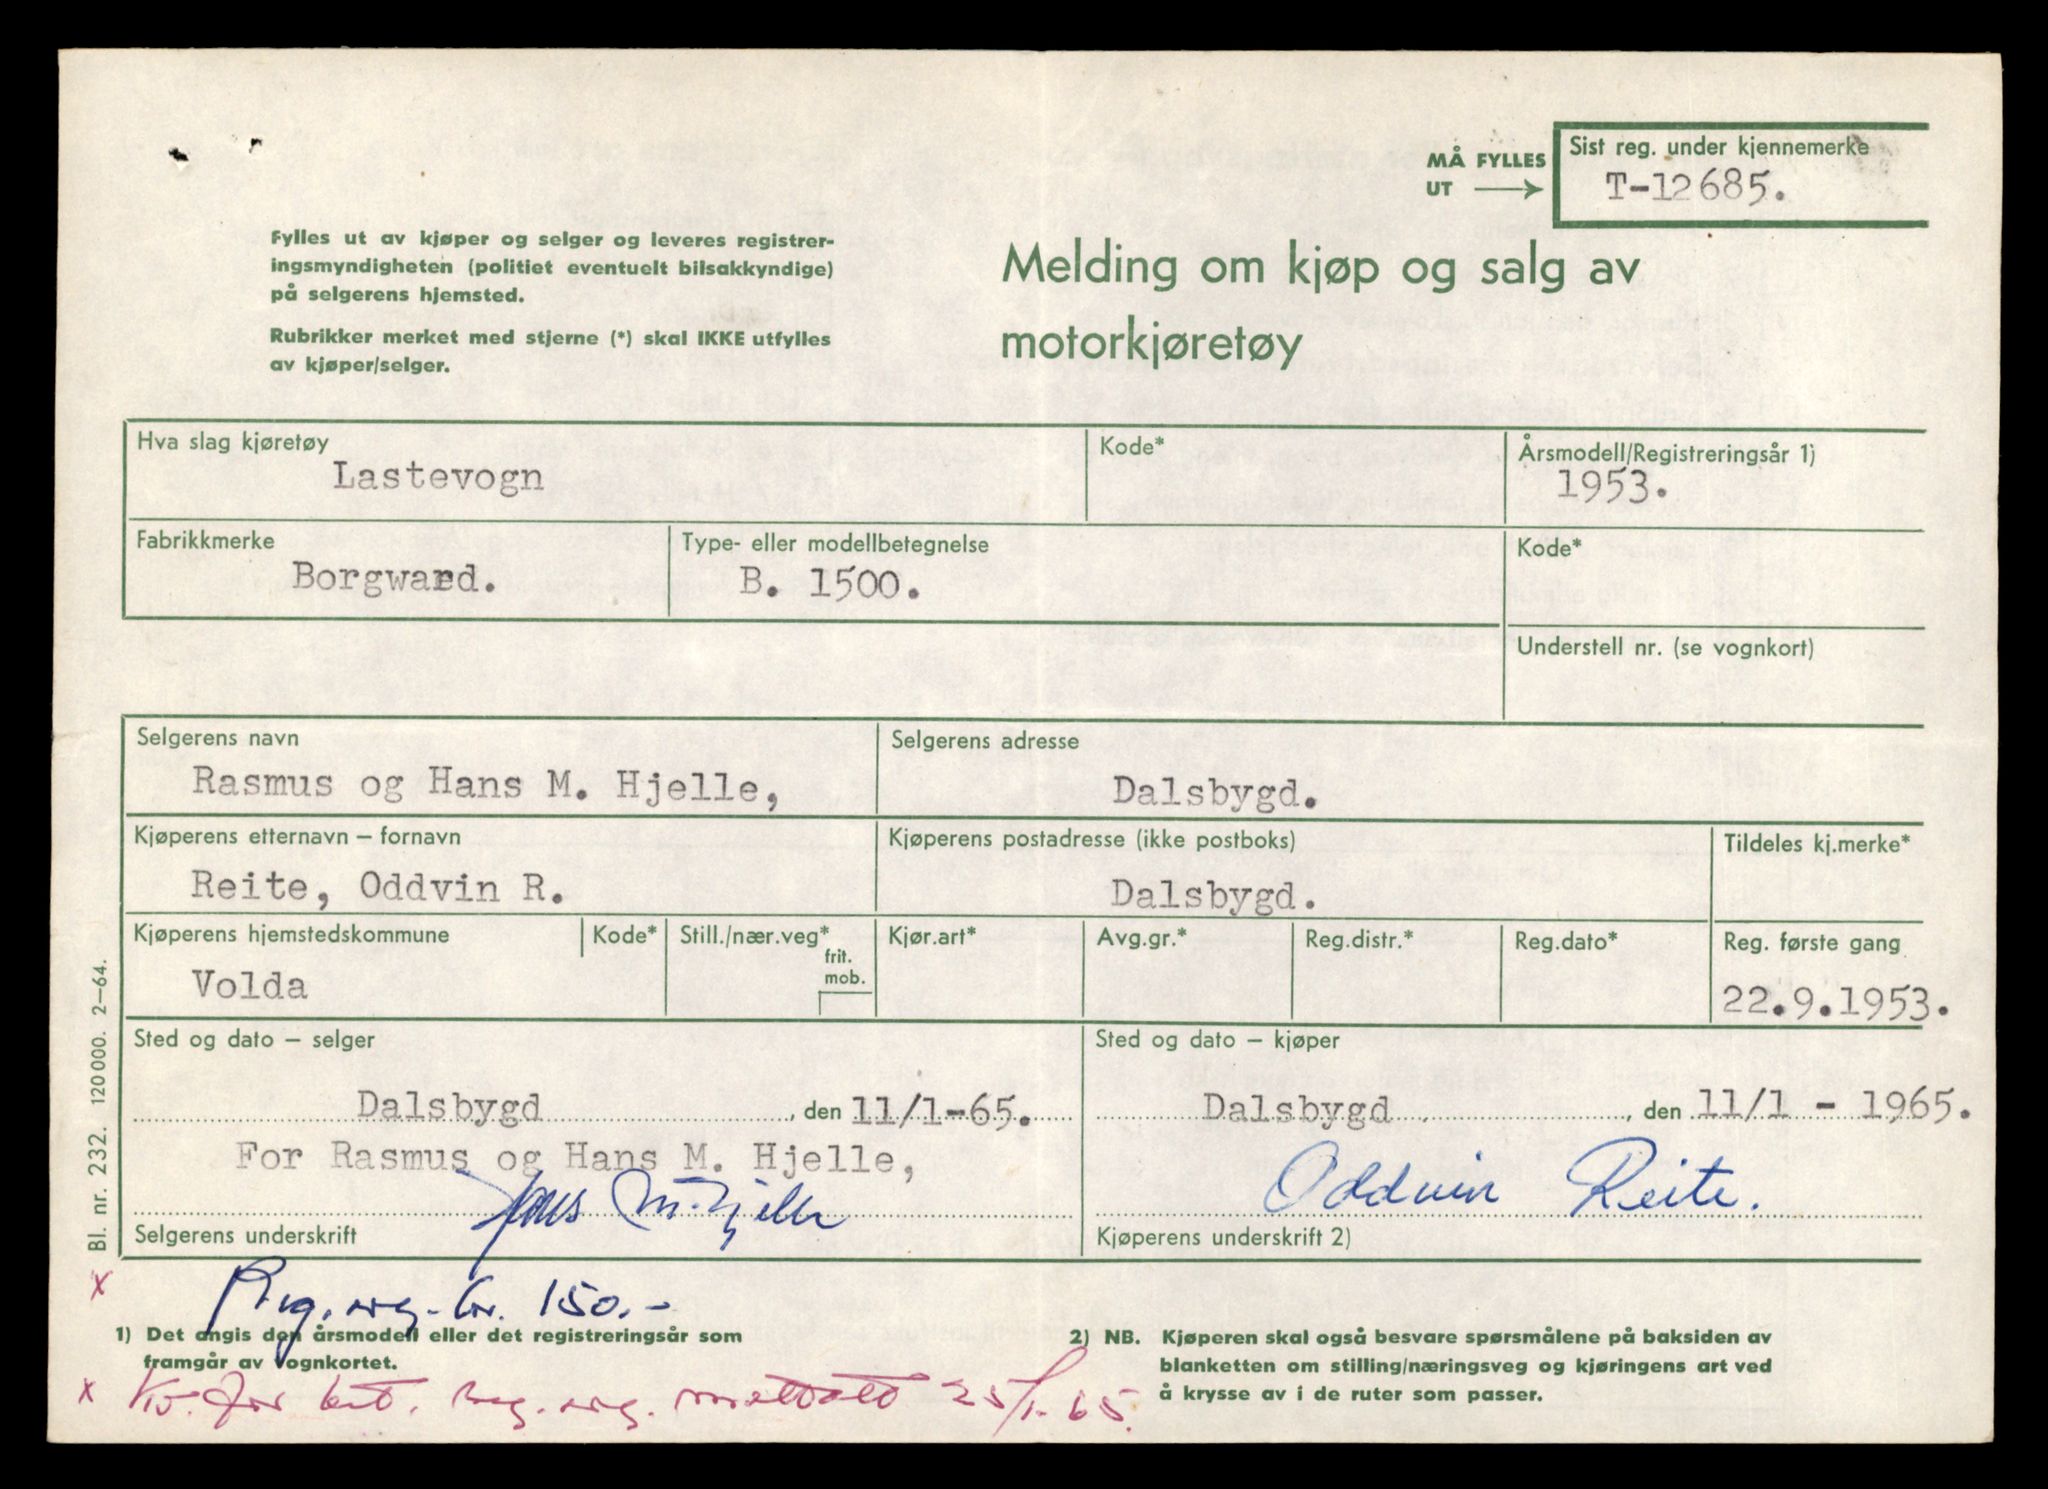 Sist reg. under kjennemerke
MÅ FYLLES
UT
T-12685.
Fylles ut av kjøper og selger og leveres registrer-
ingsmyndigheten (politiet eventuelt bilsakkyndige)
på selgerens hjemsted.
Rubrikker merket med stjerne (*) skal IKKE utfylles
av kjøper/selger.
Melding om kjøp og salg av
motorkjøretøy
Hva slag kjøretøy
Lastevogn
Kode*
Årsmodell/Registreringsår 1)
1953.
Fabrikkmerke
Borgward.
Type- eller modellbetegnelse
B. 1500.
Kode*
Understell nr. (se vognkort)
Selgerens navn
Rasmus og Hans M. Hjelle,
Selgerens adresse
Dalsbygd.
Kjøperens etternavn – fornavn
Reite, Oddvin R.
Kjøperens postadresse (ikke postboks)
Dalsbygd.
Tildeles kj.merke*
Kjøperens hjemstedskommune
Volda
Kode*
Still./nær.veg*
frit.
mob.
Kjør.art*
Avg.gr.*
Reg.distr.*
Reg.dato*
Reg. første gang
22.9.1953.
Sted og dato – selger
Dalsbygd, den 11/1-65.
For Rasmus og Hans M. Hjelle,
Hans M. Hjelle
Selgerens underskrift
Sted og dato – kjøper
Dalsbygd, den 11/1 - 1965.
Oddvin Reite.
Kjøperens underskrift 2)
Bl. nr. 232. 120 000. 2–64.
x
Reg. avg. kr. 150.-
1) Det angis den årsmodell eller det registreringsår som
framgår av vognkortet.
2) NB. Kjøperen skal også besvare spørsmålene på baksiden av
blanketten om stilling/næringsveg og kjøringens art ved
å krysse av i de ruter som passer.
x Kv. for bet. reg. avg. mottatt 25/1-65.